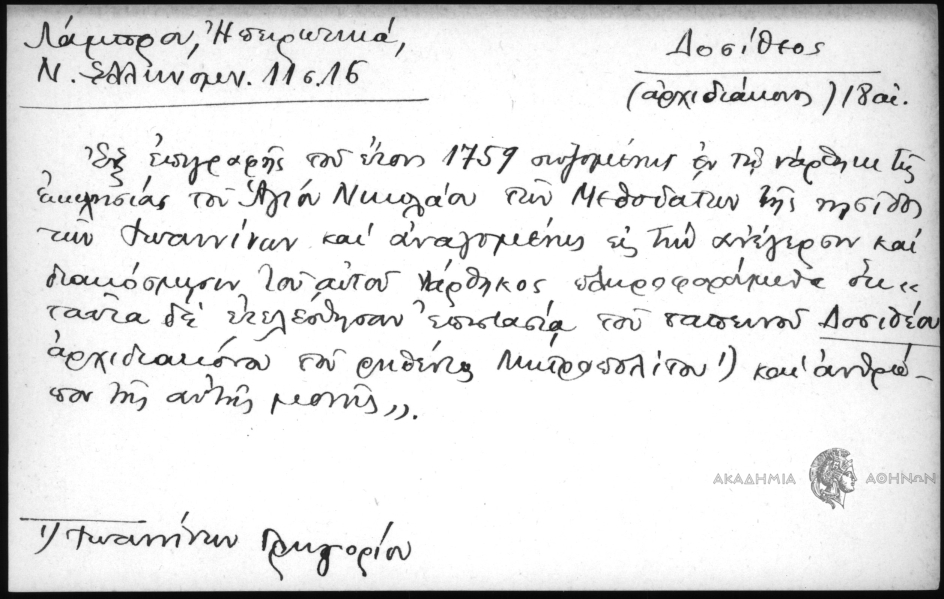 Λάμπρου, Ἠπειρωτικά,
Ν. Ἑλληνομν. 11 σ. 16
Δοσίθεος
(ἀρχιδιάκονος) 18 αἰ.
Ἐξ ἐπιγραφῆς τοῦ ἔτους 1759 σωζομένης ἐν τῷ νάρθηκι τῆς
ἐκκλησίας τοῦ Ἁγίου Νικολάου τῶν Μεθοδάτων τῆς νησίδος
τῶν Ἰωαννίνων καὶ ἀναγομένης εἰς τὴν ἀνέγερσιν καὶ
διακόσμησιν τοῦ αὐτοῦ νάρθηκος πληροφορούμεθα ὅτι „
ταῦτα δὲ ἐτελέσθησαν ἐπιστασίᾳ τοῦ ταπεινοῦ Δοσιθέου
ἀρχιδιακόνου τοῦ ρηθέντος Μητροπολίτου 1) καὶ ἀνθρώ-
που τῆς αὐτῆς μονῆς „.
ΑΚΑΔΗΜΙΑ ΑΘΗΝΩΝ
1) Ἰωαννίνων Γρηγορίου